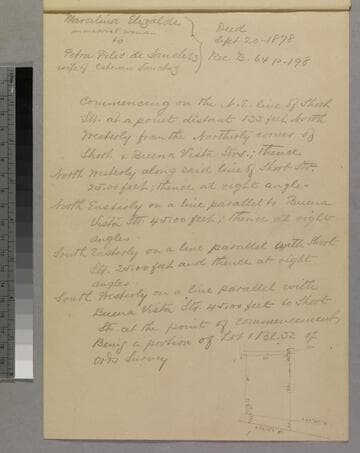 Marcelina Elizalde
unmarried woman
to
Petra Pelic de Sanchez
wife of Esteban Sanchez
Deed
Sept. 20-1878
Rec B. 64 p-198
Commencing on the N.E. line of Short
St. at a point distant 135 feet North
Westerly from the Northerly corner of
Short & Buena Vista Sts.; thence
North Westerly along said line of Short St.
25.00 feet; thence at right angles
North Easterly on a line parallel to Buena
Vista St. 45.00 feet; thence at right
angles
South Easterly on a line parallel with Short
St. 25.00 feet and thence at right
angles
South Westerly on a line parallel with
Buena Vista St. 45.00 feet to Short
St. at the point of commencement
Being a portion of Lot 1 Bl. 32 of
Ords Survey